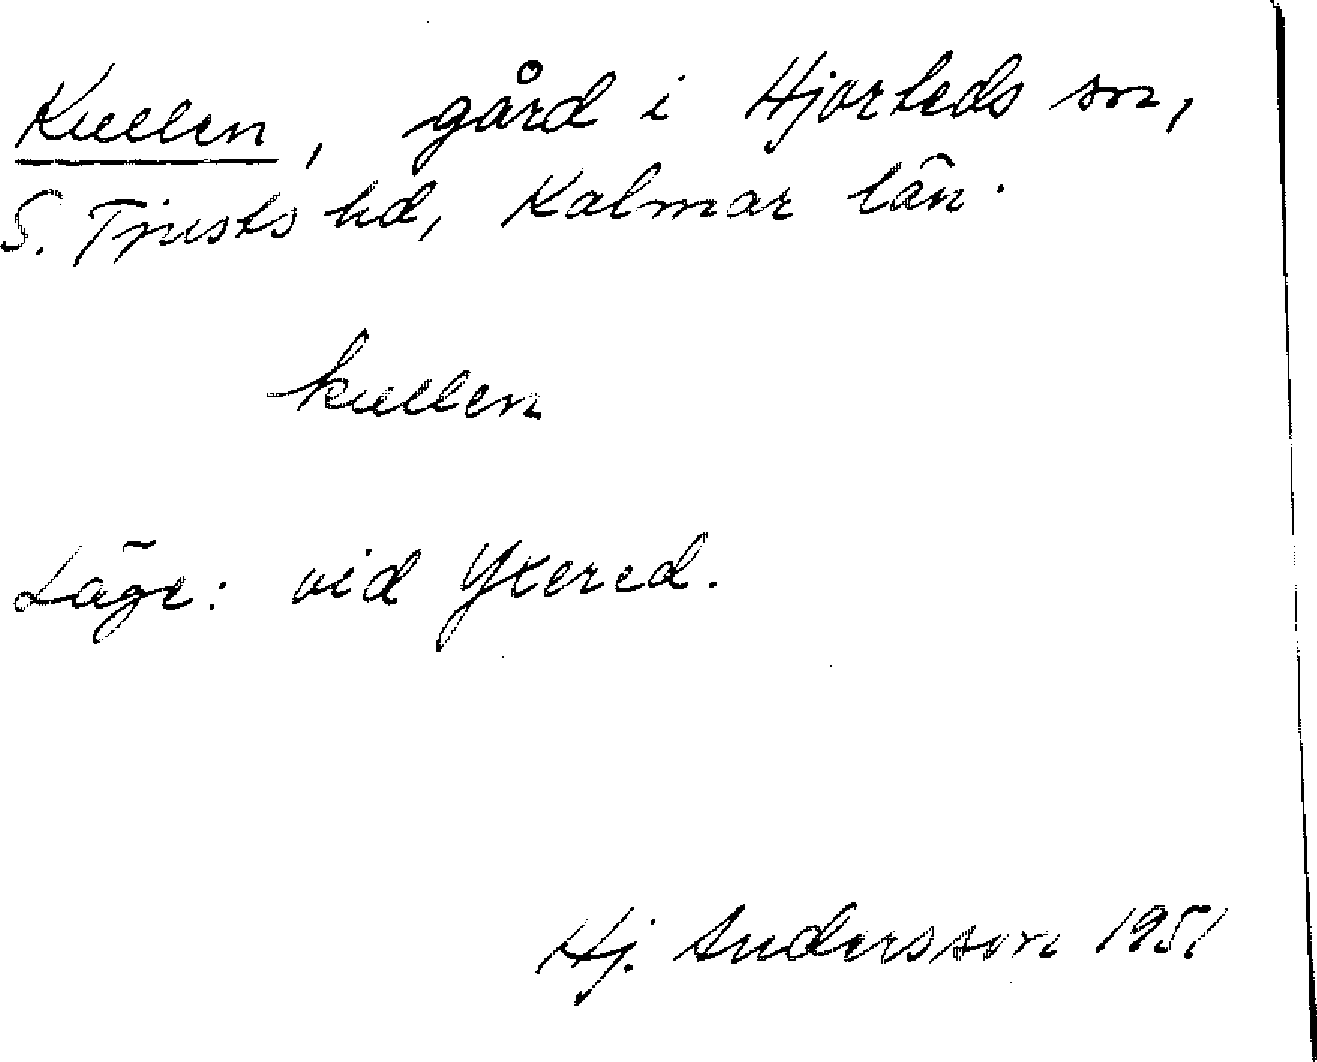 Kullen, gård i Hjorteds sn,
S. Tjusts hd, Kalmar län.
kullen
Läge: vid Yxered.
Hj. Andersson 1951